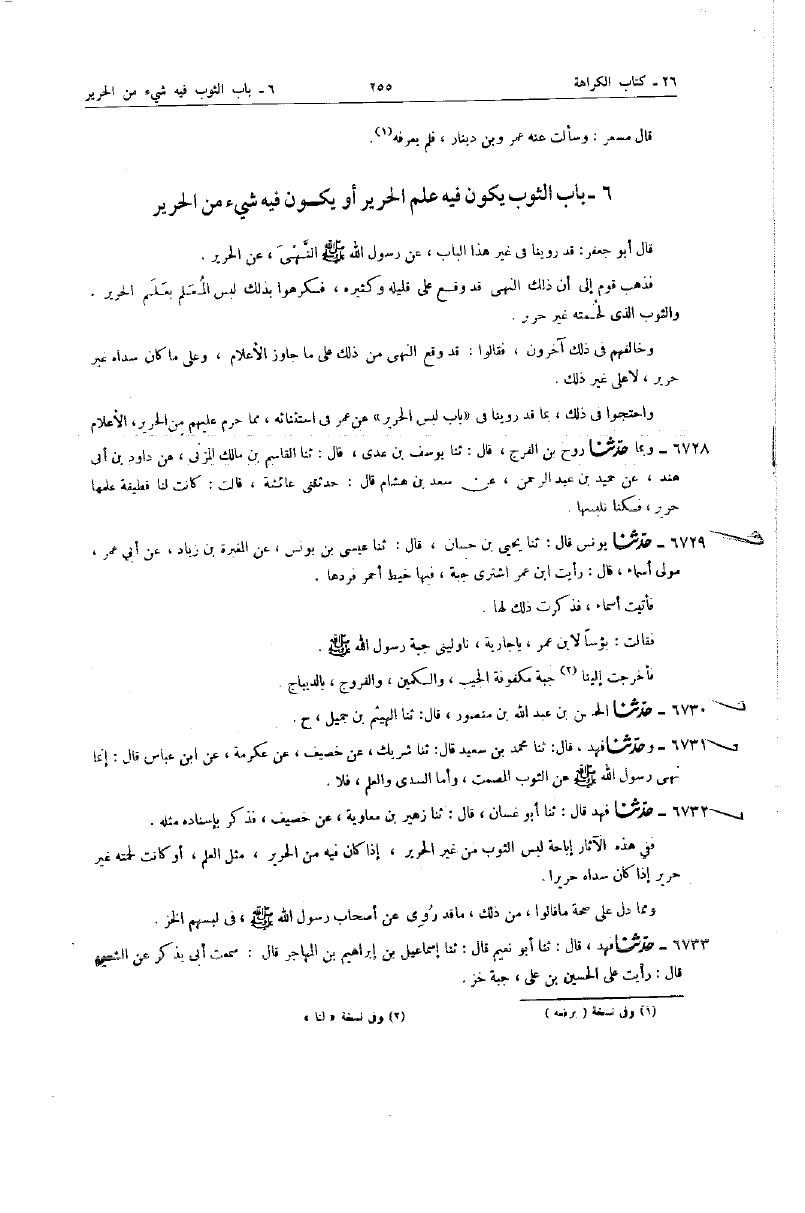 ٢٦ ـ كتاب الكراهة ٢٥٥ ٦ ـ باب الثوب فيه شيء من الحرير
قال مسعر : وسألت عنه عمر وبن دينار ، فلم يعرفه(١).
٦ ـ باب الثوب يكون فيه علم الحرير أو يكون فيه شيء من الحرير
قال أبو جعفر: قد روينا فى غير هذا الباب ، عن رسول الله ﷺ النَّهْىَ ، عن الحرير .
فذهب قوم إلى أن ذلك النهى قد وقع على قليله وكثيره ، فكرهوا بذلك لبس المُعْلَم بعَلَم الحرير .
والثوب الذى لُحمته غير حرير .
وخالفهم فى ذلك آخرون ، فقالوا : قد وقع النهى من ذلك على ما جاوز الأعلام ، وعلى ما كان سداه غير
حرير ، لاعلى غير ذلك .
واحتجوا فى ذلك ، بما قد روينا فى «باب لبس الحرير» عن عمر فى استثنائه ، مما حرم عليهم من الحرير، الأعلام
٦٧٢٨ ـ وبما حدّثنا روح بن الفرج ، قال : ثنا يوسف بن عدى ، قال : ثنا القاسم بن مالك المزنى ، عن داود بن أبى
هند ، عن حميد بن عبد الرحمن ، عن سعد بن هشام قال : حدثتنى عائشة ، قالت : كانت لنا قطيفة علمها
حرير ، فكنا نلبسها .
٦٧٢٩ ـ حدّثنا يونس قال : ثنا يحيى بن حسان ، قال : ثنا عيسى بن يونس ، عن المغيرة بن زياد ، عن أبي عمر ،
مولى أسماء ، قال : رأيت ابن عمر اشترى جبة ، فيها خيط أحمر فردها .
فأتيت أسماء ، فذكرت ذلك لها .
فقالت : بؤساً لابن عمر ، ياجارية ، ناولينى جبة رسول الله ﷺ .
فأخرجت إلينا (٢) جبة مكفوفة الجيب ، والكمين ، والفروج ، بالديباج .
٦٧٣٠ ـ حدّثنا الحسن بن عبد الله بن منصور ، قال : ثنا الهيثم بن جميل ، ح .
٦٧٣١ ـ وحدّثنا فهد ، قال: ثنا محمد بن سعيد قال: ثنا شريك ، عن خصيف ، عن عكرمة ، عن ابن عباس قال : إنما
نهى رسول الله ﷺ عن الثوب المصمت ، وأما السدى والعلم ، فلا .
٦٧٣٢ ـ حدّثنا فهد قال : ثنا أبو غسان ، قال : ثنا زهير بن معاوية ، عن خصيف ، فذكر بإسناده مثله .
ففي هذه الآثار إباحة لبس الثوب من غير الحرير ، إذا كان فيه من الحرير ، مثل العلم ، أو كانت لحمته غير
حرير إذا كان سداه حريرا .
ومما دل على صحة ماقالوا ، من ذلك ، ماقد رُوِى عن أصحاب رسول الله ﷺ ، فى لبسهم الخز .
٦٧٣٣ ـ حدّثنا فهد ، قال : ثنا أبو نعيم قال : ثنا إسماعيل بن إبراهيم بن المهاجر قال : سمعت أبى يذكر عن الشعبى
قال : رأيت على الحسين بن على ، جبة خز .
(١) وفى نسخة ( يرفعه ) (٢) وفى نسخة « لنا »